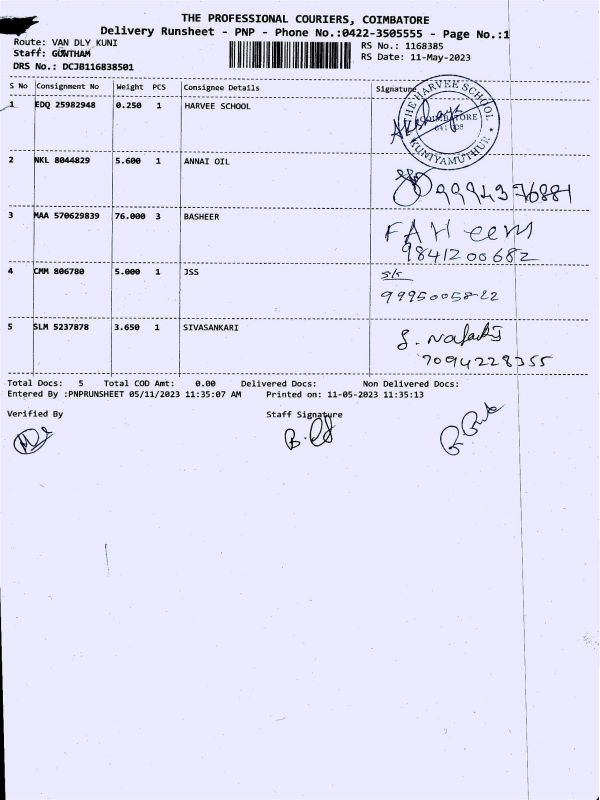 THE PROFESSIONAL COURIERS, COIMBATORE
Delivery Runsheet - PNP - Phone No.:0422-3505555 - Page No.:1
Route: VAN DLY KUNI
Staff: GOWTHAM
DRS No.: DCJB116838501
RS No.: 1168385
RS Date: 11-May-2023
S No Consignment No Weight PCS Consignee Details Signature
1 EDQ 25982948 0.250 1 HARVEE SCHOOL
THE HARVEE SCHOOL
COIMBATORE
641 008
KUNIYAMUTHUR
2 NKL 8044829 5.600 1 ANNAI OIL
9994376881
3 MAA 570629839 76.000 3 BASHEER FAHeem
9841200682
4 CMM 806780 5.000 1 JSS
9995005822
5 SLM 5237878 3.650 1 SIVASANKARI
7094228355
Total Docs: 5 Total COD Amt: 0.00 Delivered Docs: Non Delivered Docs:
Entered By :PNPRUNSHEET 05/11/2023 11:35:07 AM Printed on: 11-05-2023 11:35:13
Verified By Staff Signature